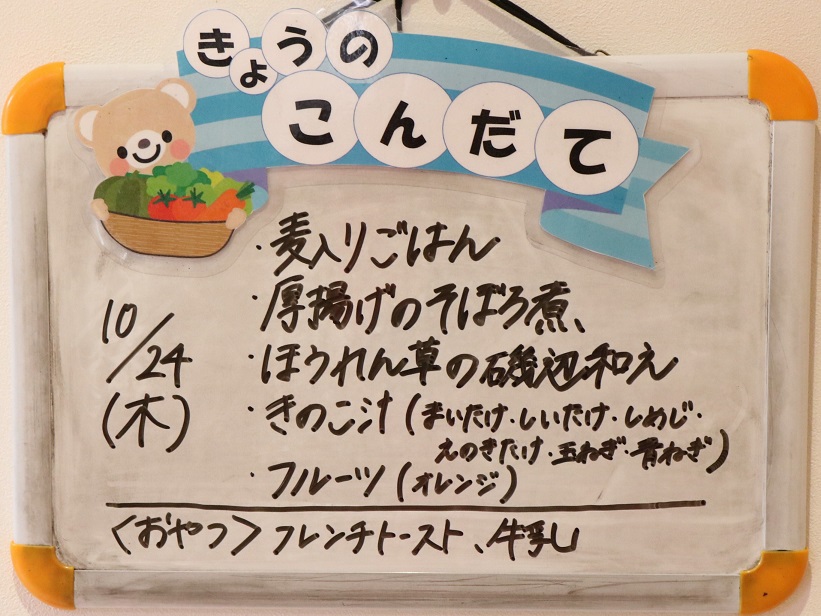 きょうの
こんだて
10/24
(木)
・麦入りごはん
・厚揚げのそぼろ煮、
・ほうれん草の磯辺和え
・きのこ汁(まいたけ・しいたけ・しめじ・
えのきたけ・玉ねぎ・青ねぎ)
・フルーツ(オレンジ)
<おやつ>フレンチトースト、牛乳